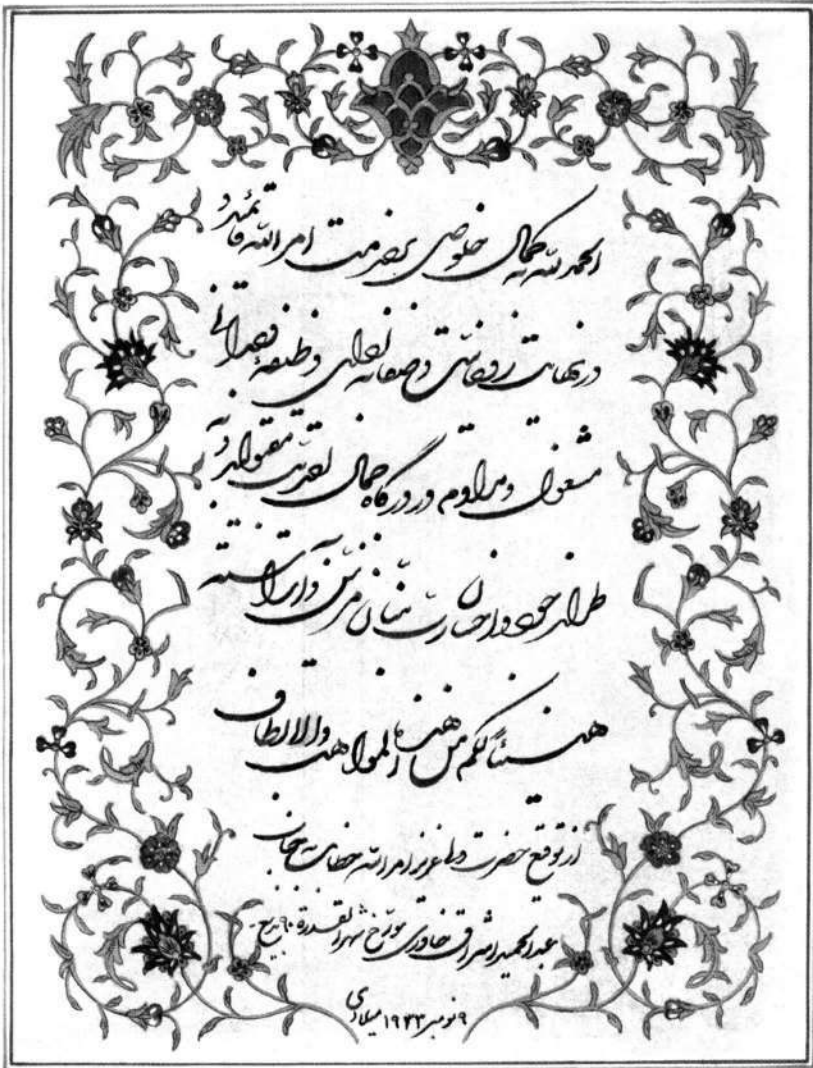 الحمد لله به کمال خلوص بخدمت امرالله قائمید و
در نهایت روحانیت و صفا به ادای وظیفهٔ وجدانی
مشغول و مداوم و در درگاه جمال احدیت مقبولید و به
طراز جود و احسان ربّ منّان مزیّن و آراسته
هنیئاً لکم من هذه المواهب و الالطاف
از توقیع حضرت ولی عزیز امرالله خطاب به جناب
عبدالحمید اشراق خاوری مورّخ شهر القدرة ۹۰ بدیع
۹ نومبر ۱۹۳۳ میلادی